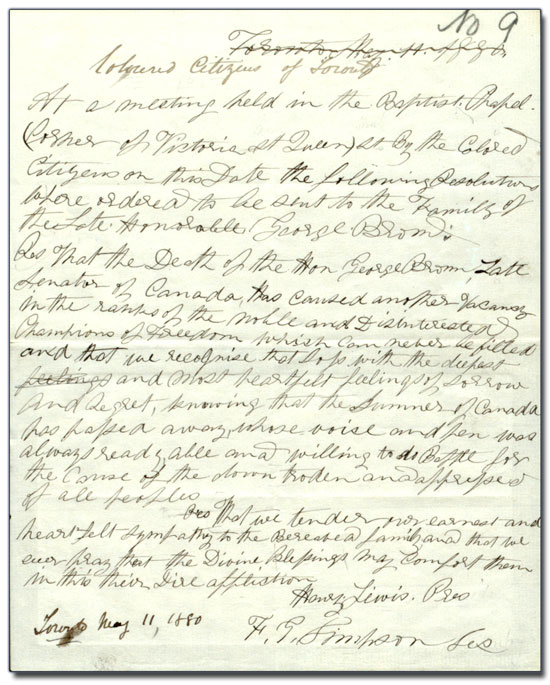 No 9
Toronto May 11. 1880
Coloured Citizens of Toronto
At a meeting held in the Baptist Chapel.
Corner of Victoria st Queen st By the Colored
Citizens on this Date the following Resolutions
Where ordered to be sent to the Family of
the Late Honorable George Brown
Res That the Death of the Hon George Brown, Late
Senator of Canada, Has caused another Vacancy
in the ranks of the noble and Disinterested
Champions of Freedom which can never be filled
and that we recognise that loss with the deepest
feelings and most heartfelt feelings of sorrow
and regret, knowing that the Sumner of Canada
has passed away whose voise and pen was
always ready, able and willing to do Battle for
the Cause of the down troden and oppressed
of all peoples
Res That we tender our earnest and
heart felt sympathy to the Bereaved family and that we
ever pray that the Divine Blessings May Comfort them
in this their Dire affliction
Henry Lewis. Pres
Toronto May 11, 1880
F. G. Simpson Sec